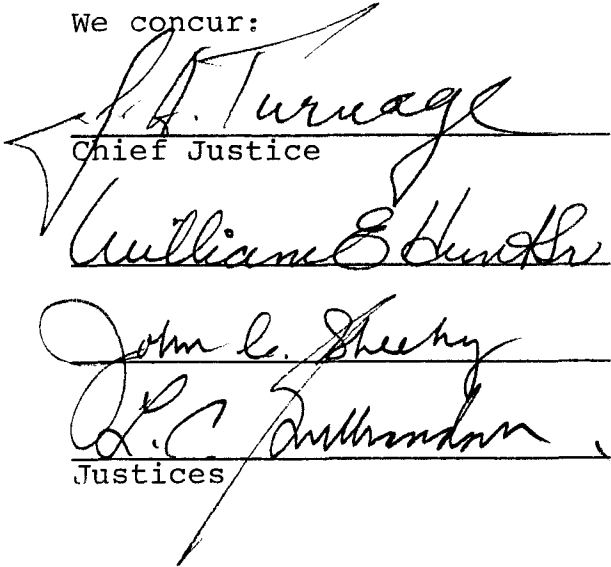 We concur:
J. A. Turnage
Chief Justice
William E Hunt Sr
John C. Sheehy
L. C. Gulbrandson
Justices